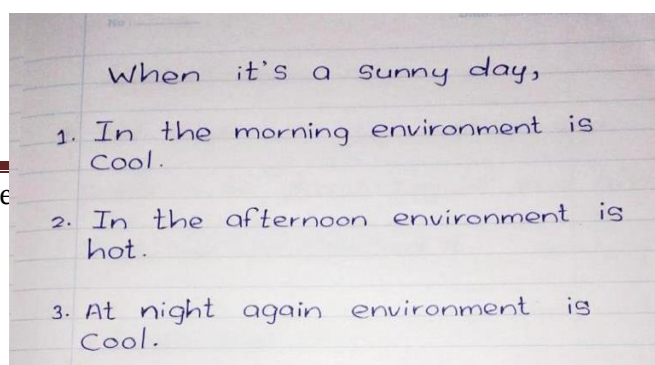 When it's a sunny day,
1. In the morning environment is
cool.
2. In the afternoon environment is
hot.
3. At night again environment is
cool.